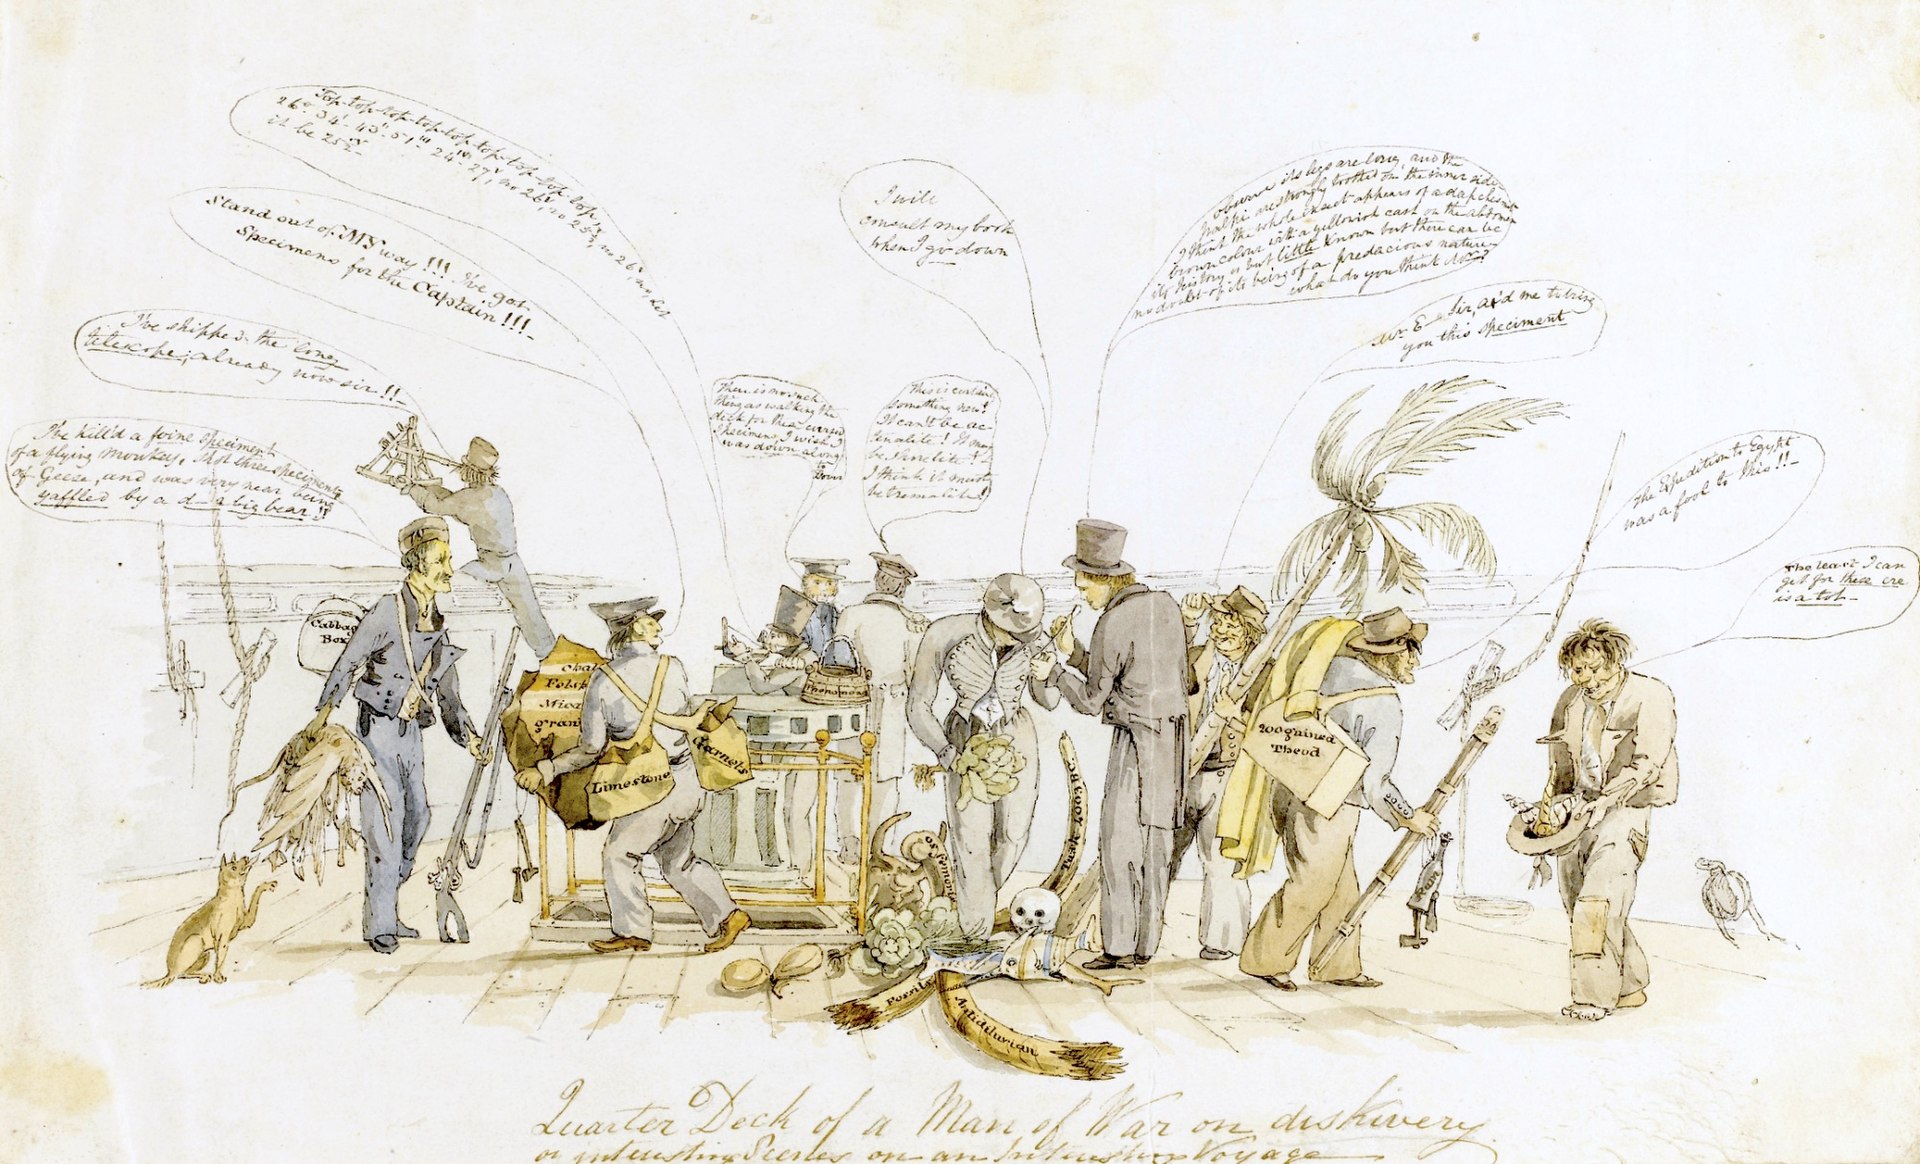 Top-top-top-top-top-top-top-top-top,
26°-34'-43"-51'''-24
it be 25
Stand out of MY way!!! I've got
Specimens for the Captain!!!
I've shipped the long
telescope; already now sir!!
I've kill'd a foine speciment
of a flying Monkey, shot three speciments
of Geese, and was very near being
yaffled by a d— a big bear!!
There is no such
thing as walking the
deck for these cursed
Specimens, I wish I
was down along
to
Dover
This is certainly
something new!
It can't be ac-
tenolite! It may
be
I think it must
be tremalite!
I will
consult my book
when I go down
observe its legs are long, and the
palpi are strongly toothed on the inner side-
I think the whole insect appears of a dark chesnut
brown colour with a yellowish cast on the abdomen
its history is but little known but there can be
no doubt of its being of a predacious nature-
what do you think
Mr E— Sir, a'd me to bring
you this speciment
The Expedition to Egypt
was a fool to this!!-
The least I can
get for these ere
is a tot-
Cabbage
Box
Chalk
Felspar
Mica
gran
Limestone
Garnets
Phenomena
Tusk 4001 BC.
Fossils
Antidilurian
200 gained
Theod
Rum
Quarter Deck of a Man of War on diskivery
or interesting Scenes on an Interesting Voyage